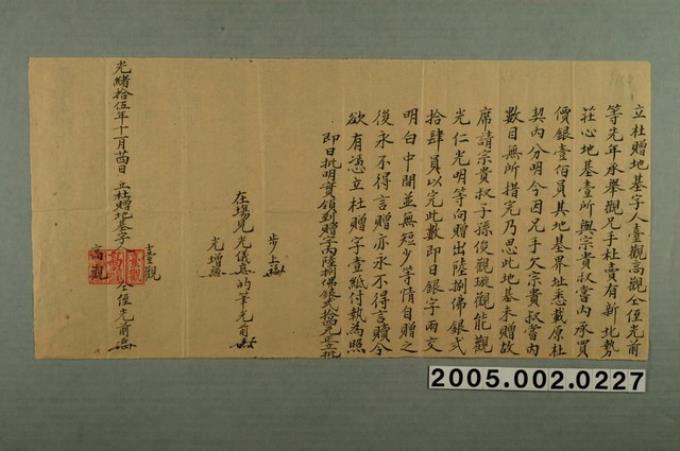 立杜贈地基字人臺觀高觀仝侄光前
等先年承舉觀兄手杜賣有新北勢
莊心地基壹所與宗貴叔當內承買
價銀壹佰員其地基界址悉載原杜
契內分明今因兄手欠宗貴叔當內
數目無所措完乃思此地基未贈故
席請宗貴叔子孫俊觀 觀能觀
光仁光明等向贈出陸捌佛銀弍
拾肆員以完此數即日銀字兩交
明白中間並無短少等情自贈之
後永不得言贈亦永不得言贖今
欲有憑立杜贈字壹紙付執為照
即日批明實領到贈字內陸捌佛銀弍拾肆元正立批
步上
在場見光儀 的筆光前
光增
光緒拾伍年十一月廿四日立杜贈地基字人臺觀
高觀
仝侄光前
2005.002.0227